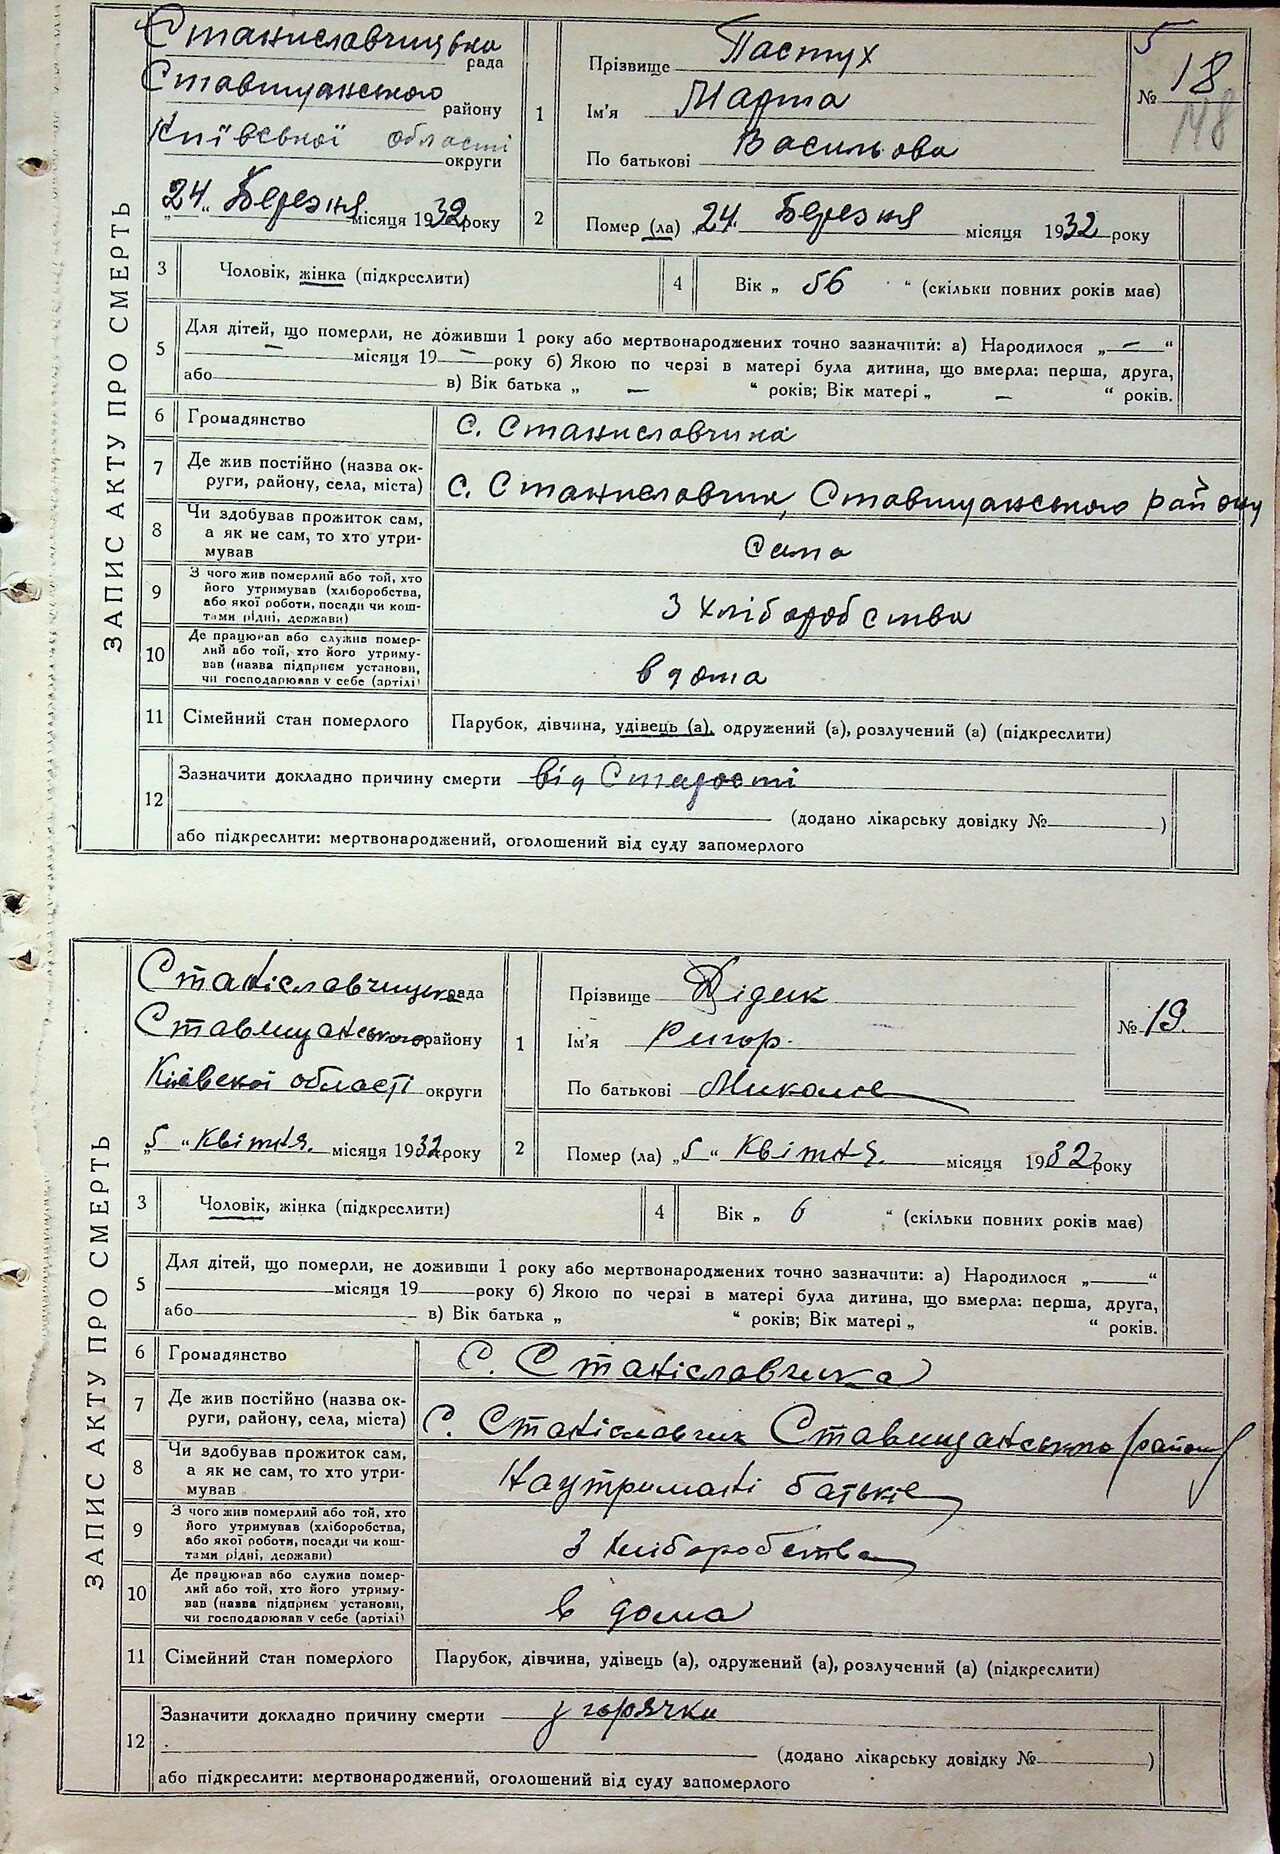 ЗАПИС АКТУ ПРО СМЕРТЬ
Станиславчицька рада
Ставищанського району
Київської області округи
„24“ Березня місяця 1932 року
1
Прізвище Пастух
Ім'я Марта
По батькові Васильова
5
№ 18
148
2
Помер (ла) „24“ Березня місяця 1932 року
3 Чоловік, жінка (підкреслити)
4 Вік „ 56 “ (скільки повних років має)
5 Для дітей, що померли, не доживши 1 року або мертвонароджених точно зазначити: а) Народилося „ — “
— місяця 19 — року б) Якою по черзі в матері була дитина, що вмерла: перша, друга,
або в) Вік батька „ — “ років; Вік матері „ — “ років.
6 Громадянство с. Станиславчина
7 Де жив постійно (назва ок-
руги, району, села, міста) с. Станиславчик, Ставищанського району
8 Чи здобував прожиток сам,
а як не сам, то хто утри-
мував сама
9 З чого жив померлий або той, хто
його утримував (хліборобства,
або якої роботи, посади чи кош-
тами рідні, держави) З хліборобства
10 Де працював або служив помер-
лий або той, хто його утриму-
вав (назва підприєм установи,
чи господарював у себе (артілі) в дома
11 Сімейний стан померлого Парубок, дівчина, удівець (а), одружений (а), розлучений (а) (підкреслити)
12 Зазначити докладно причину смерти від Старости
(додано лікарську довідку № )
або підкреслити: мертвонароджений, оголошений від суду запомерлого
ЗАПИС АКТУ ПРО СМЕРТЬ
Станіславчицька рада
Ставищанського району
Київскої області округи
„5“ Квітня. місяця 1932 року
1
Прізвище Дідик
Ім'я Ригор.
По батькові Миколів
№ 19.
2
Помер (ла) „5“ Квітня. місяця 1932 року
3 Чоловік, жінка (підкреслити)
4 Вік „ 6 “ (скільки повних років має)
5 Для дітей, що померли, не доживши 1 року або мертвонароджених точно зазначити: а) Народилося „ “
місяця 19 року б) Якою по черзі в матері була дитина, що вмерла: перша, друга,
або в) Вік батька „ “ років; Вік матері „ “ років.
6 Громадянство С. Станіславчика
7 Де жив постійно (назва ок-
руги, району, села, міста) С. Станіславчик Ставищанського району
8 Чи здобував прожиток сам,
а як не сам, то хто утри-
мував Наутримані батьків
9 З чого жив померлий або той, хто
його утримував (хліборобства,
або якої роботи, посади чи кош-
тами рідні, держави) З хліборобства
10 Де працював або служив помер-
лий або той, хто його утриму-
вав (назва підприєм установи,
чи господарював у себе (артілі) в дома
11 Сімейний стан померлого Парубок, дівчина, удівець (а), одружений (а), розлучений (а) (підкреслити)
12 Зазначити докладно причину смерти з горячки
(додано лікарську довідку № )
або підкреслити: мертвонароджений, оголошений від суду запомерлого